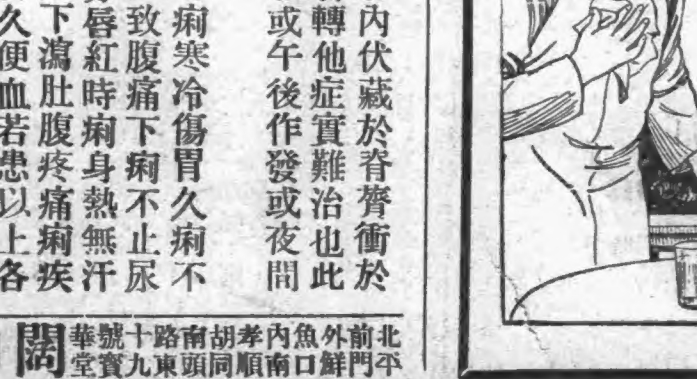 內伏藏於脊膂衝於
轉他症實難治也此
或午後作發或夜間
痢寒冷傷胃久痢不
致腹痛下痢不止尿
唇紅時痢身熱無汗
下瀉肚腹疼痛痢疾
久便血若患以上各
北平
前門
外鮮
魚口
內南
孝順
胡同
南頭
路東
十九
號寶
華堂
闊